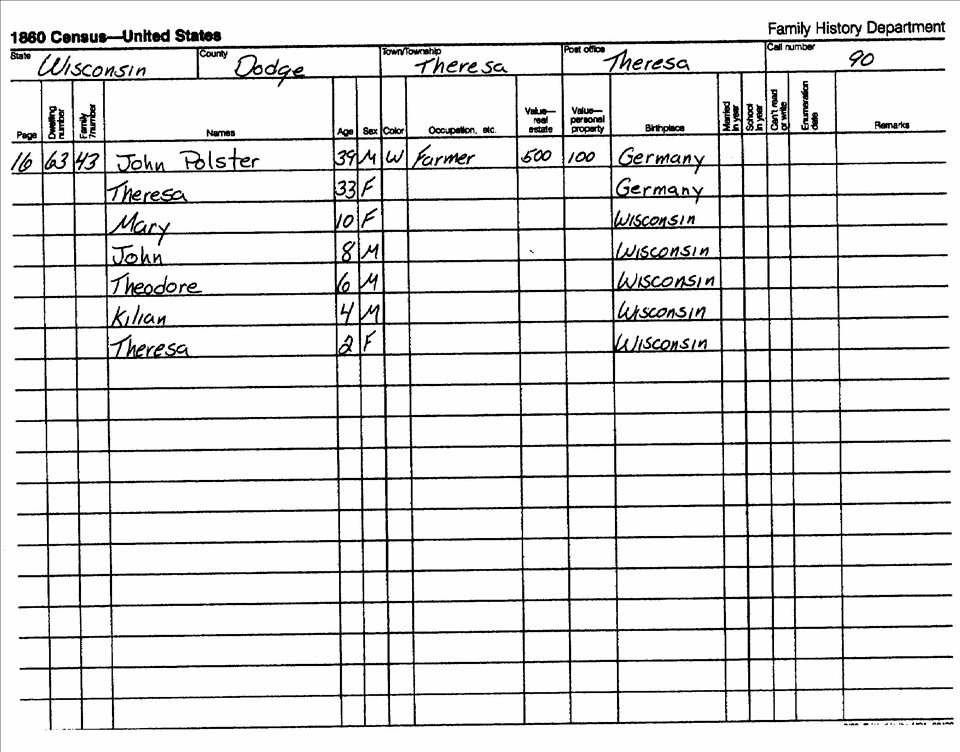 1860 Census—United States Family History Department
State Wisconsin County Dodge Town/Township Theresa Post office Theresa Call number 90
Page Dwelling number Family number Names Age Sex Color Occupation, etc. Value—real estate Value—personal property Birthplace Married in year School in year Can't read or write Enumeration date Remarks
16 63 43 John Polster 39 M W Farmer 500 100 Germany
Theresa 33 F Germany
Mary 10 F Wisconsin
John 8 M Wisconsin
Theodore 6 M Wisconsin
Kilian 4 M Wisconsin
Theresa 2 F Wisconsin